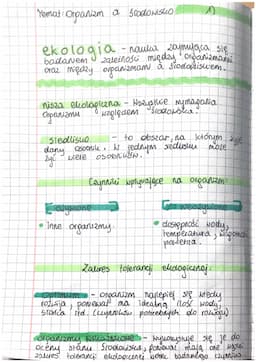 Temat: Organizm a środowisko 1)
ekologia - nauka zajmująca się
badaniem zależności między organizmami
oraz między organizmami a środowiskiem.
nisza ekologiczna - wszystkie wymagania
organizmu względem środowiska.
siedlisko - to obszar, na którym żyje
dany osobnik. W jednym siedlisku może
żyć wiele osobników.
Czynniki wpływające na organizm
ożywione nieożywione
• inne organizmy • dostępność wody,
temperatura, wilgotność
powietrza.
Zakres tolerancji ekologicznej
optimum - organizm najlepiej się wtedy
rozwija, ponieważ ma idealną ilość wody,
słońca itd. (czynników potrzebnych do rozwoju)
organizmy wskaźnikowe - wykorzystuje się je do
oceny stanu środowiska, ponieważ mają one wąski
zakres tolerancji ekologicznej wobec badanego czynnika